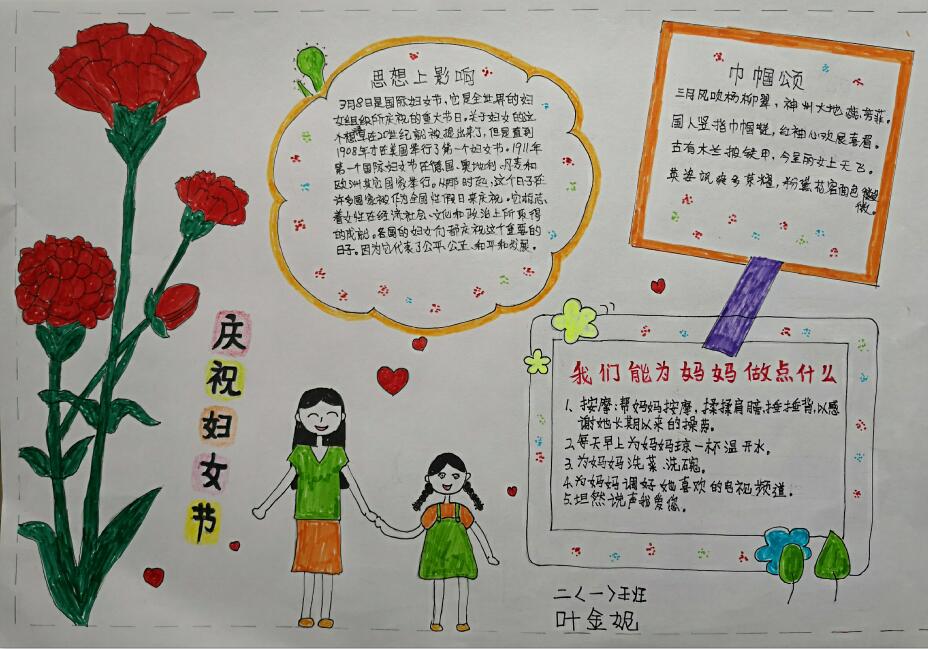 思想上影响
3月8日是国际妇女节，它是全世界的妇
女组织所庆祝的重大节日。关于妇女的这
个想法早在20世纪前被提出来了，但是直到
1908年才在美国举行了第一个妇女节。1911年
第一个国际妇女节在德国、奥地利、丹麦和
欧洲其它国家举行。从那时起，这个日子在
许多国家被作为全国性假日来庆祝。它标志
着女性在经济社会、文化和政治上所取得
的成就。各国的妇女们都庆祝这个重要的
日子。因为它代表了公平、公正、和平和发展。
巾帼颂
三月风吹杨柳翠，神州大地蕊芳菲。
国人竖指巾帼赞，红袖心欢展喜眉。
古有木兰披铁甲，今呈丽女上天飞。
英姿飒爽多荣耀，粉黛花容面色
微。
庆祝妇女节
我们能为妈妈做点什么
1、按摩：帮妈妈按摩，揉揉肩膀，捶捶背，以感
谢她长期以来的操劳。
2.每天早上为妈妈琼一杯温开水。
3.为妈妈洗菜、洗碗。
4.为妈妈调好她喜欢的电视频道.
5.坦然说声我爱您。
二〈一〉班
叶金妮